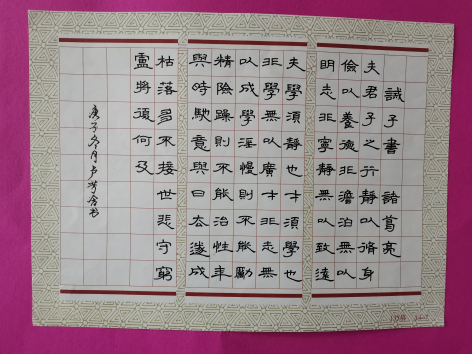 誡子書 諸葛亮
夫君子之行靜以脩身
儉以養德非澹泊無以
明志非寧靜無以致遠
夫學須靜也才須學也
非學無以廣才非志無
以成學淫慢則不能勵
精險躁則不能治性年
與時馳意與日去遂成
枯落多不接世悲守窮
廬將復何及
庚子冬月卢书